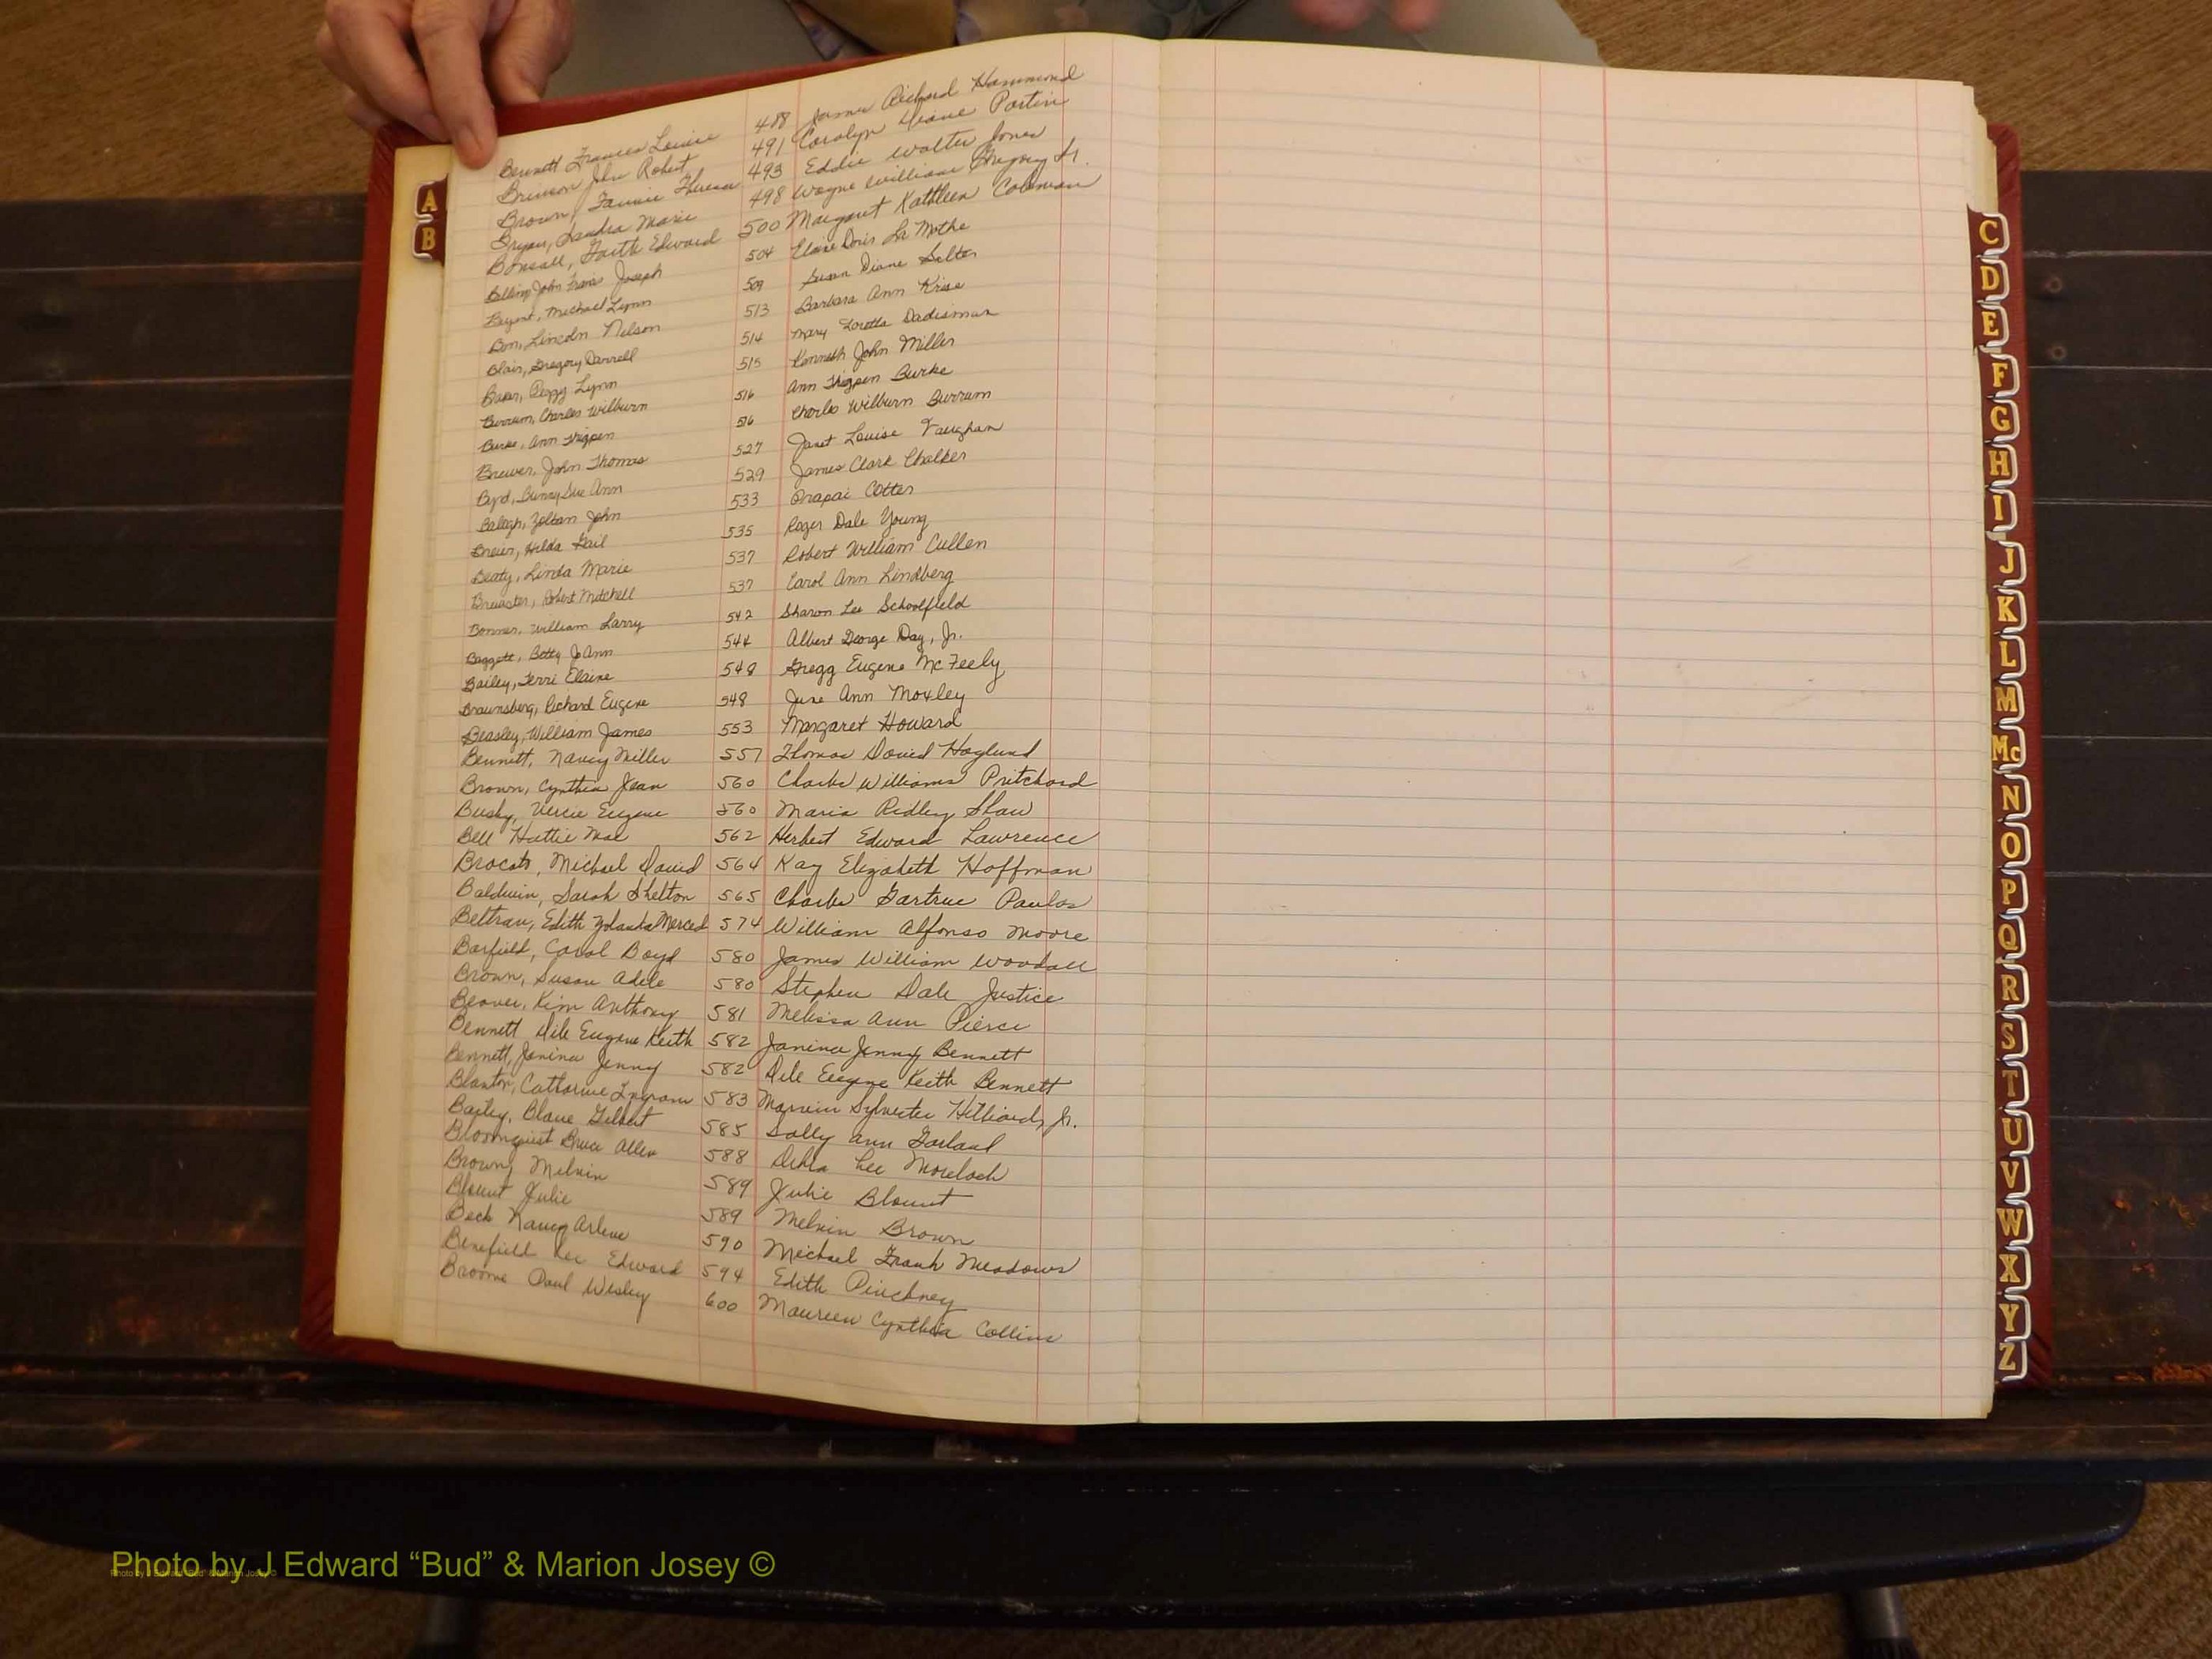 Bennett Frances Louise 488 James Richard Hammond
Brinson John Robert 491 Carolyn Diane Partin
Brown, Fannie Theresa 493 Eddie Walter Jones
Bryan, Sandra Marie 498 Wayne William Gregory Jr.
Bonsall, Garth Edward 500 Margaret Kathleen Coleman
Belling John Francis Joseph 504 Elaine Doris La Mothe
Bryant, Michael Lynn 509 Susan Diane Salter
Bon, Lincoln Nelson 513 Barbara Ann Krise
Blair, Gregory Darrell 514 Mary Loretta Dadisman
Baker, Peggy Lynn 515 Kenneth John Miller
Burrum, Charles Wilburn 516 Ann Thigpen Burke
Burke, Ann Thigpen 516 Charles Wilburn Burrum
Brewer, John Thomas 527 Janet Louise Vaughan
Byrd, Bunny Sue Ann 529 James Clark Chalker
Balogh, Zoltan John 533 Orapai Cotter
Breier, Hilda Gail 535 Roger Dale Young
Beaty, Linda Marie 537 Robert William Cullen
Brewster, Robert Mitchell 537 Carol Ann Lindberg
Bonner, William Larry 542 Sharon Lee Schoolfield
Baggett, Betty JoAnn 544 Albert George Day, Jr.
Bailey, Terri Elaine 548 Gregg Eugene McFeely
Braunsberg, Richard Eugene 548 June Ann Moxley
Beasley, William James 553 Margaret Howard
Bennett, Nancy Miller 557 Thomas David Haglund
Brown, Cynthia Jean 560 Charles Williams Pritchard
Busby, Vercie Eugene 560 Maria Ridley Shaw
Bell Hattie Mae 562 Herbert Edward Lawrence
Brocato, Michael David 564 Kay Elizabeth Hoffman
Baldwin, Sarah Shelton 565 Charles Gartrue Paulos
Beltran, Edith Yolanda Merced 574 William Alfonso Moore
Barfield, Carol Boyd 580 James William Woodall
Brown, Susan Adele 580 Stephen Dale Justice
Beaver, Kim Anthony 581 Melissa Ann Pierce
Bennett Dile Eugene Keith 582 Janina Jenny Bennett
Bennett, Janina Jenny 582 Dile Eugene Keith Bennett
Blanton, Catharine Ingram 583 Marvin Sylvester Hilliard, Jr.
Bailey, Blane Gilbert 585 Sally Ann Garland
Bloomquist Bruce Allen 588 Debra Lee Moreloch
Brown, Melvin 589 Julie Blount
Blount Julie 589 Melvin Brown
Beck Nancy Arlene 590 Michael Frank Meadows
Benefield Lee Edward 594 Edith Pinckney
Broome Paul Wesley 600 Maureen Cynthia Collins
A
B
C
D
E
F
G
H
I
J
K
L
M
Mc
N
O
P
Q
R
S
T
U
V
W
X
Y
Z
Photo by J Edward “Bud” & Marion Josey ©
Photo by J Edward “Bud” & Marion Josey ©